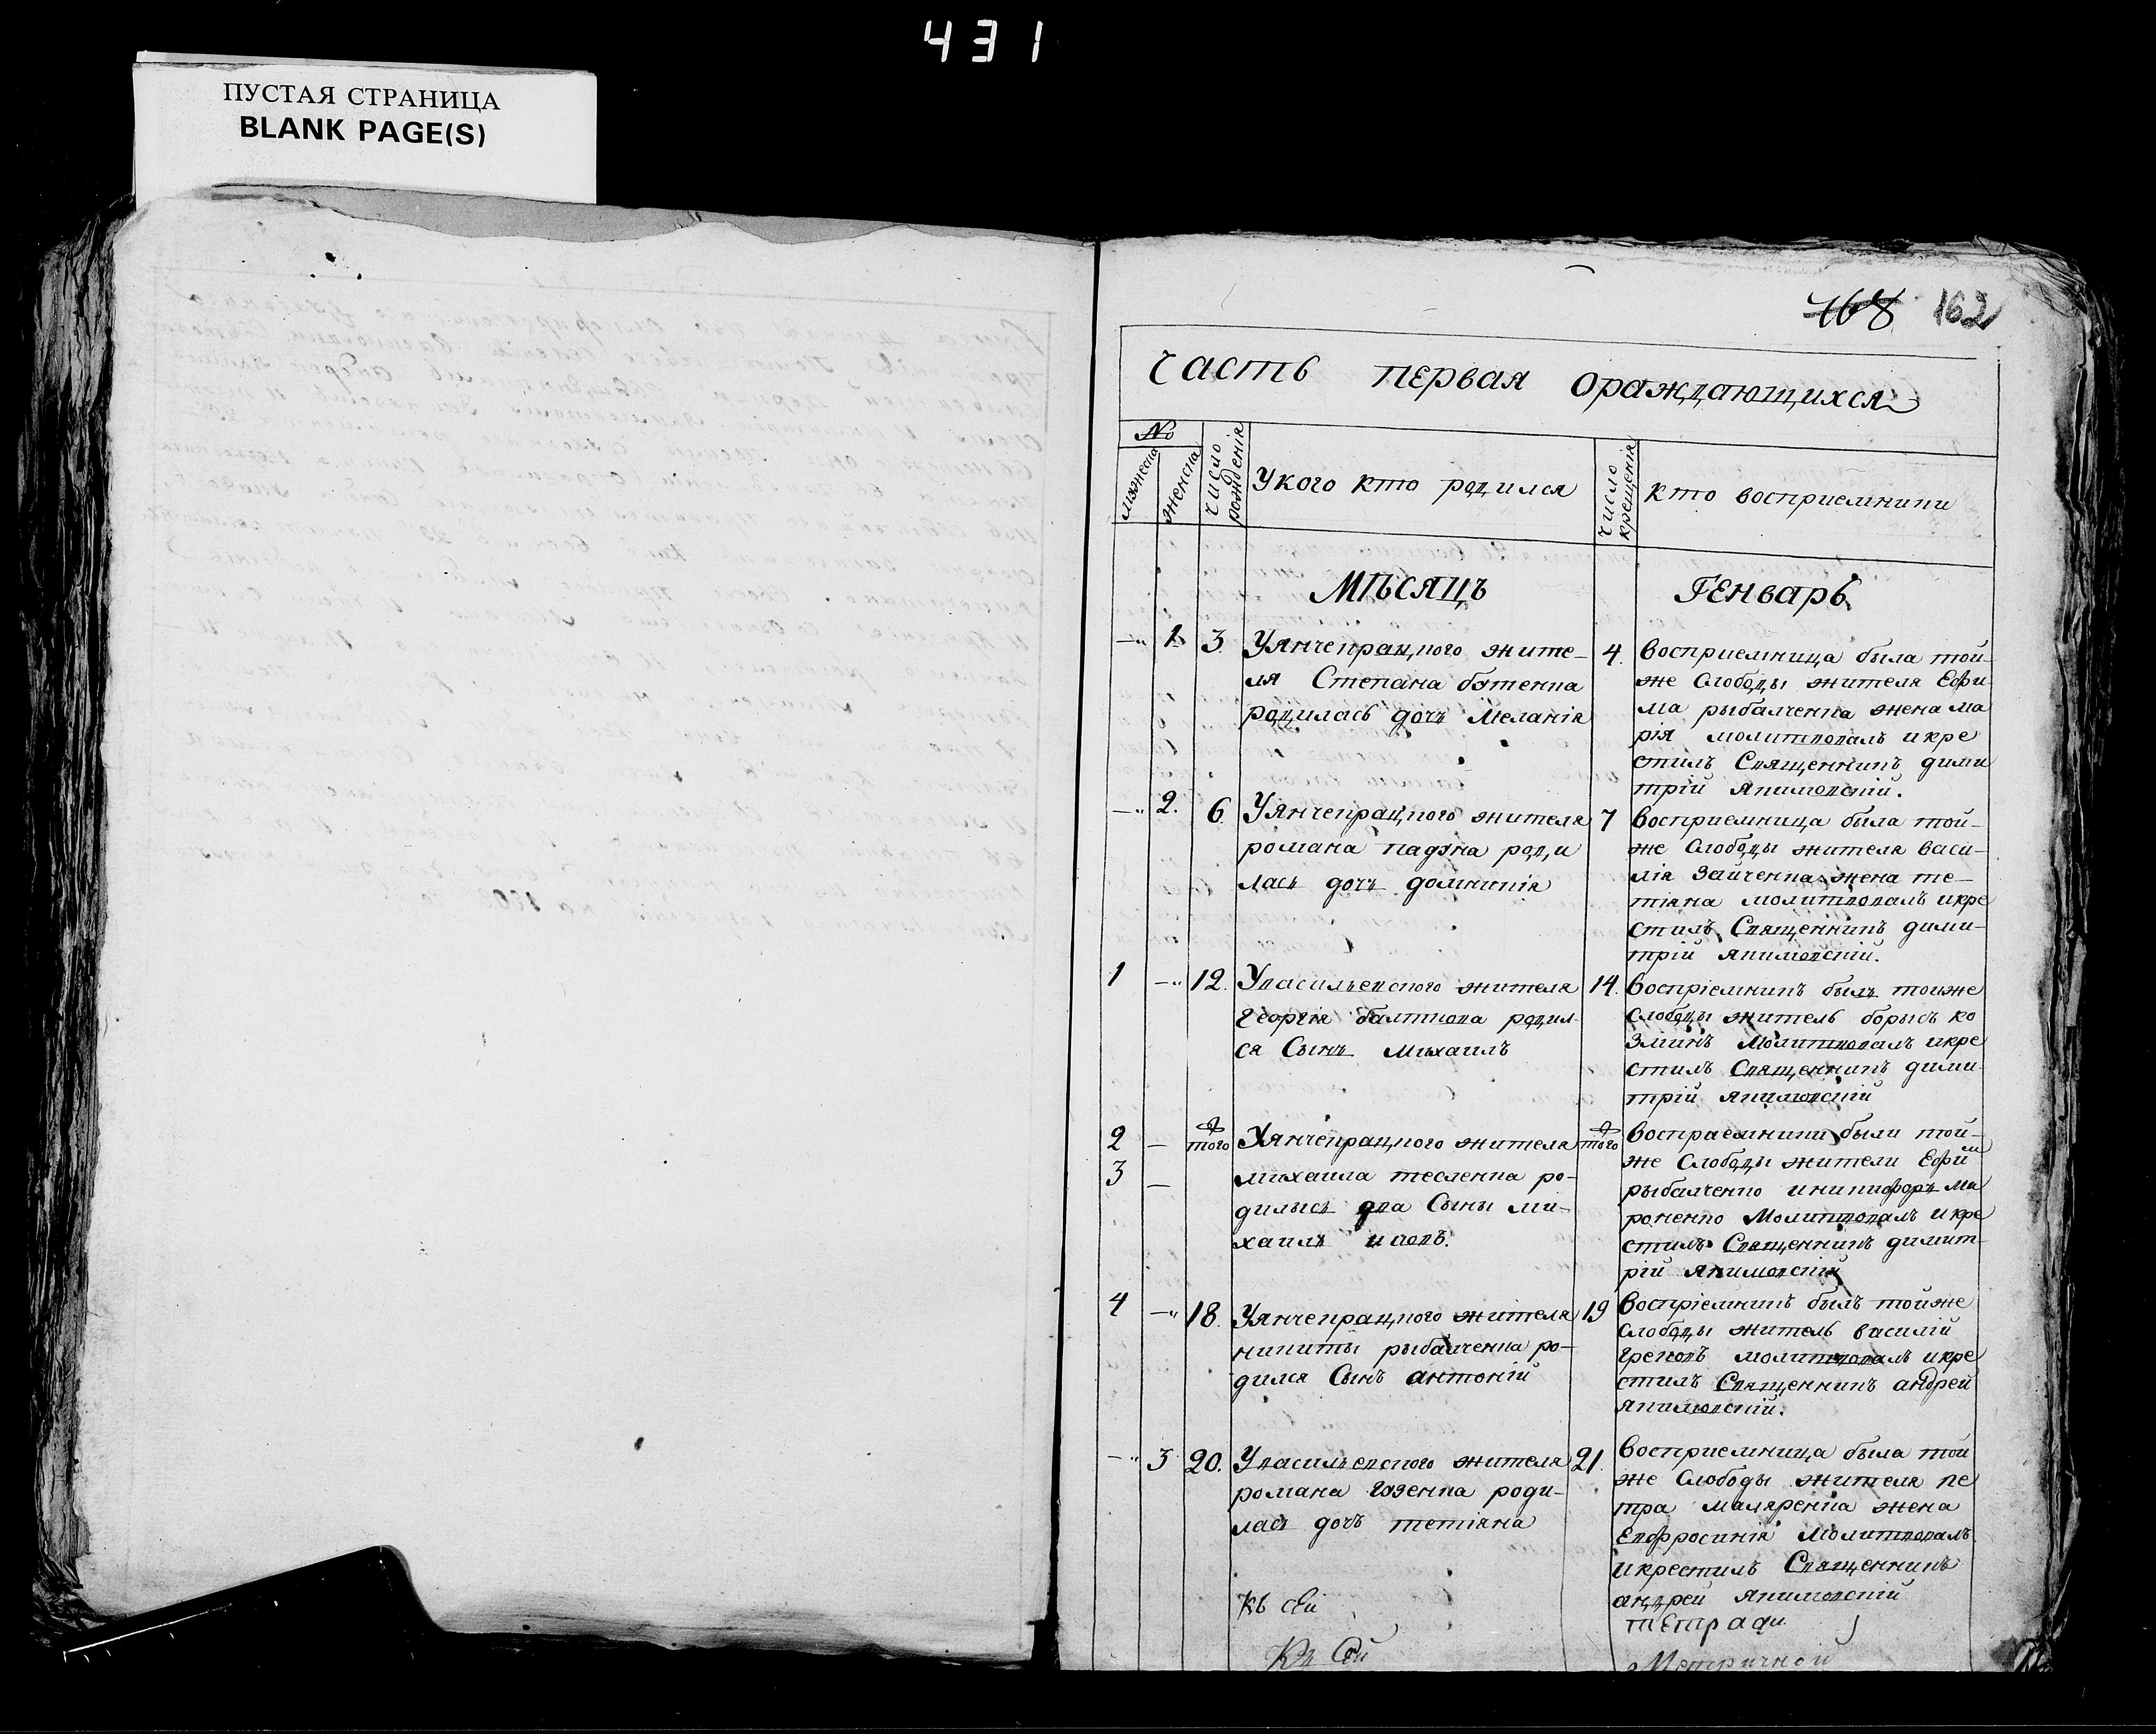 431
ПУСТАЯ СТРАНИЦА
BLANK PAGE(S)
468 162
Часть первая ораждающихся
№
мужеска
женска
число рождения
У кого кто родился
число крещенія
кто восприемники
Мѣсяцъ Генварь
—„ 1. 3. Уянчекрацкого жите-
ля Степана бэтенка
родилась дочъ Меланія
4. восприемница была той-
же Слободы жителя Ефи-
ма рыбалченка жена ма
рія молитвовалъ и кре
стилъ Священникъ дими
трій якимовскій.
—„ 2. 6. Уянчекрацкого жителя
романа падэна роди
лась дочъ домникія
7 восприемница была той-
же Слободы жителя васи-
лія Зайченка жена те-
тіяна молитвовалъ икре
стилъ Священникъ дими-
трій якимовскій.
1 —„ 12. Увасильевского жителя
Георгія балтцова родил-
ся Сынъ Михаилъ
14. воспріемникъ былъ тойже
Слободы житель борысъ ко
зминъ Молитвовалъ икре
стилъ Священникъ дими-
трій якимовскій
2 — того Уянчекрацкого жителя
3 — михаила тесленка ро-
дилысь два Сыны ми-
хаилъ иаовъ.
того восприемники были той-
же Слободы жители Ефим
рыбалченко иникифоръ ми
роненко Молитвовалъ икре
стилъ Священникъ димит-
рій якимовскій
4 —„ 18. Уянчекрацкого жителя
никиты рыбалченка ро-
дился Сынъ антоній
19 воспріемникъ былъ тойже
Слободы житель василій
Грековъ молитвовалъ икре
стилъ Священникъ андрей
якимовскій.
—„ 3 20. Увасильевского жителя
романа гэзенка роди-
лась дочъ тетіяна
21. восприемница была той
же Слободы жителя пе
тра маляренка жена
Евфросинія молитвовалъ
икрестилъ Священникъ
андрей якимовскій
къ сей
тетради
Къ Сей
Метричной